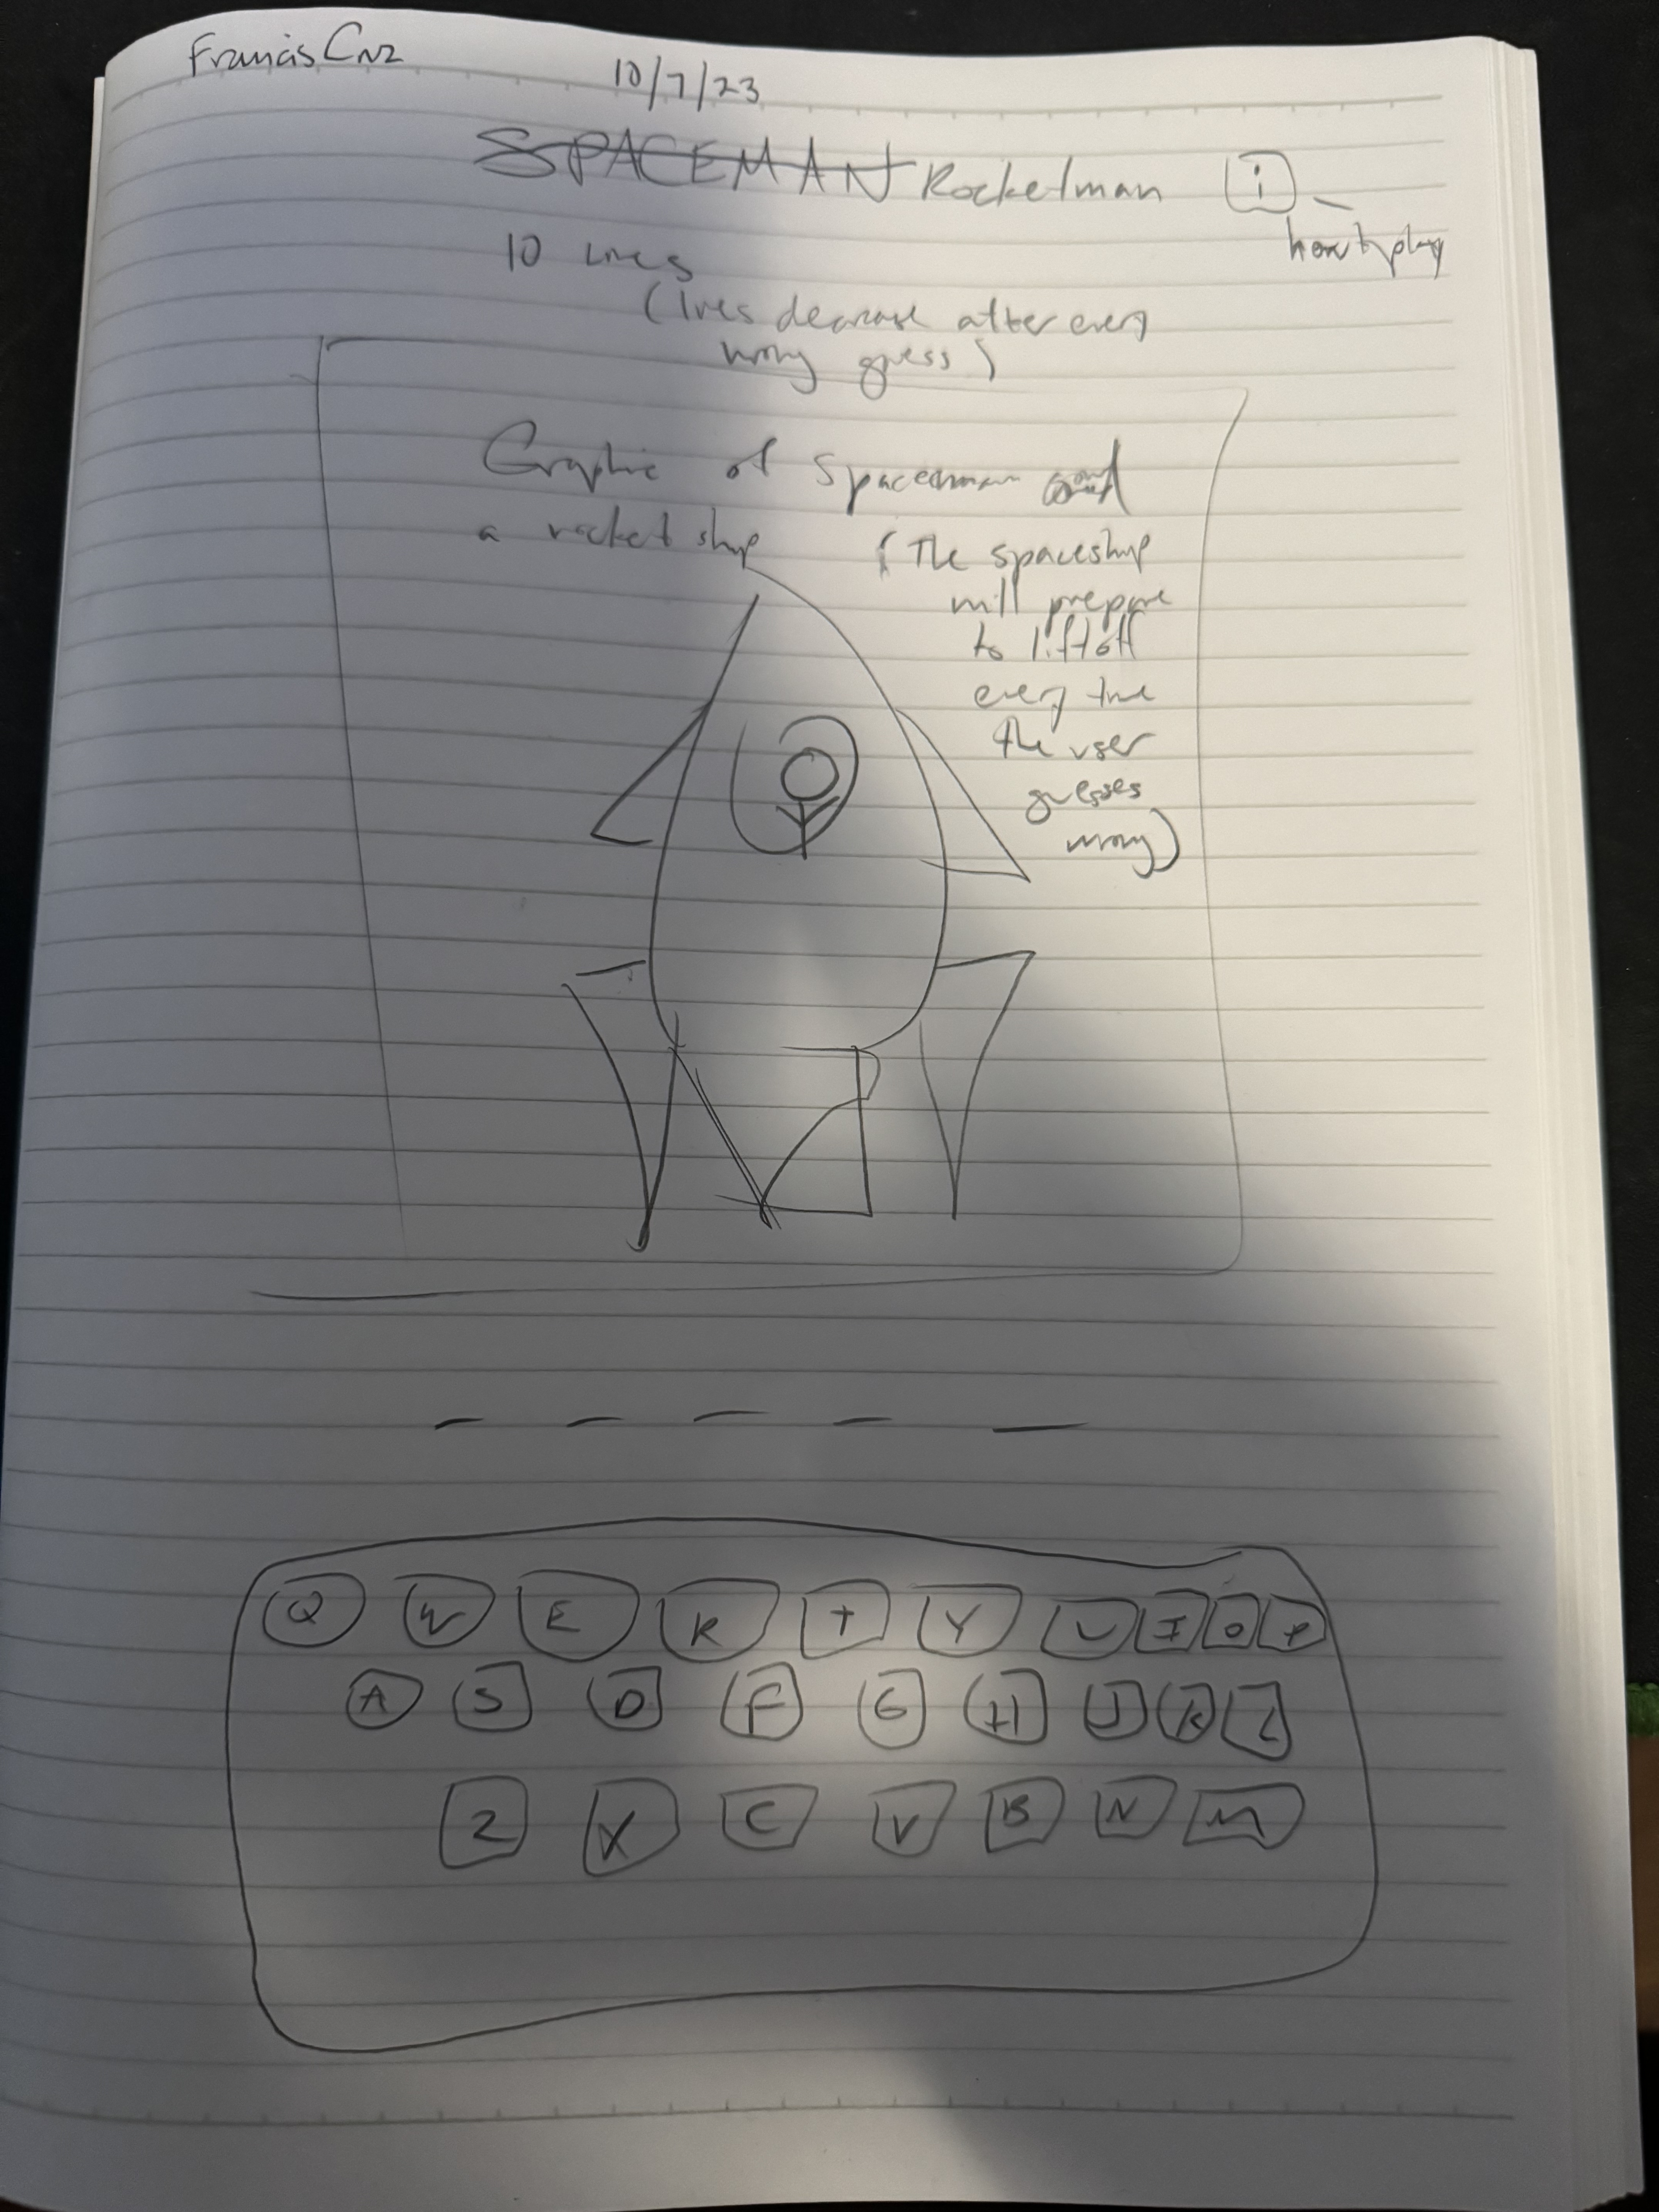 Francis Cruz
10/7/23
SPACEMAN Rocketman i
how to play
10 lives
(lives decrease after every
wrong guess)
Graphic of Spaceman and
a rocket ship
(The spaceship
will prepare
to liftoff
every time
the user
guesses
wrong)
Q W E R T Y U I O P
A S D F G H J K L
Z X C V B N M